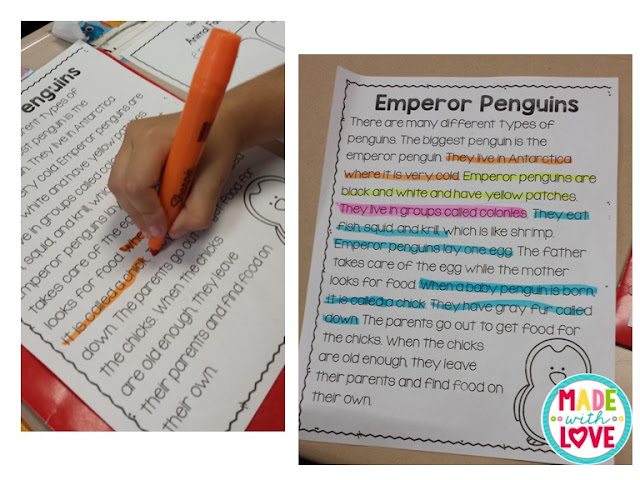 Animal Fa
enguins
erent types of
st penguin is the
n. They live in Antarctica
very cold. Emperor penguins are
white and have yellow patches
ve in groups called colonies
squid, and krill, wh
mperor penguins lay
takes care of the
looks for food. Wh
it is called a chick
down. The parents go out food for
the chicks. When the chicks
are old enough, they leave
their parents and find food on
their own.
Sharpie
Emperor Penguins
There are many different types of
penguins. The biggest penguin is the
emperor penguin. They live in Antarctica
where it is very cold. Emperor penguins are
black and white and have yellow patches.
They live in groups called colonies. They eat
fish, squid, and krill, which is like shrimp.
Emperor penguins lay one egg. The father
takes care of the egg while the mother
looks for food. When a baby penguin is born,
it is called a chick. They have gray fur called
down. The parents go out to get food for
the chicks. When the chicks
are old enough, they leave
their parents and find food on
their own.
MADE
with
LOVE